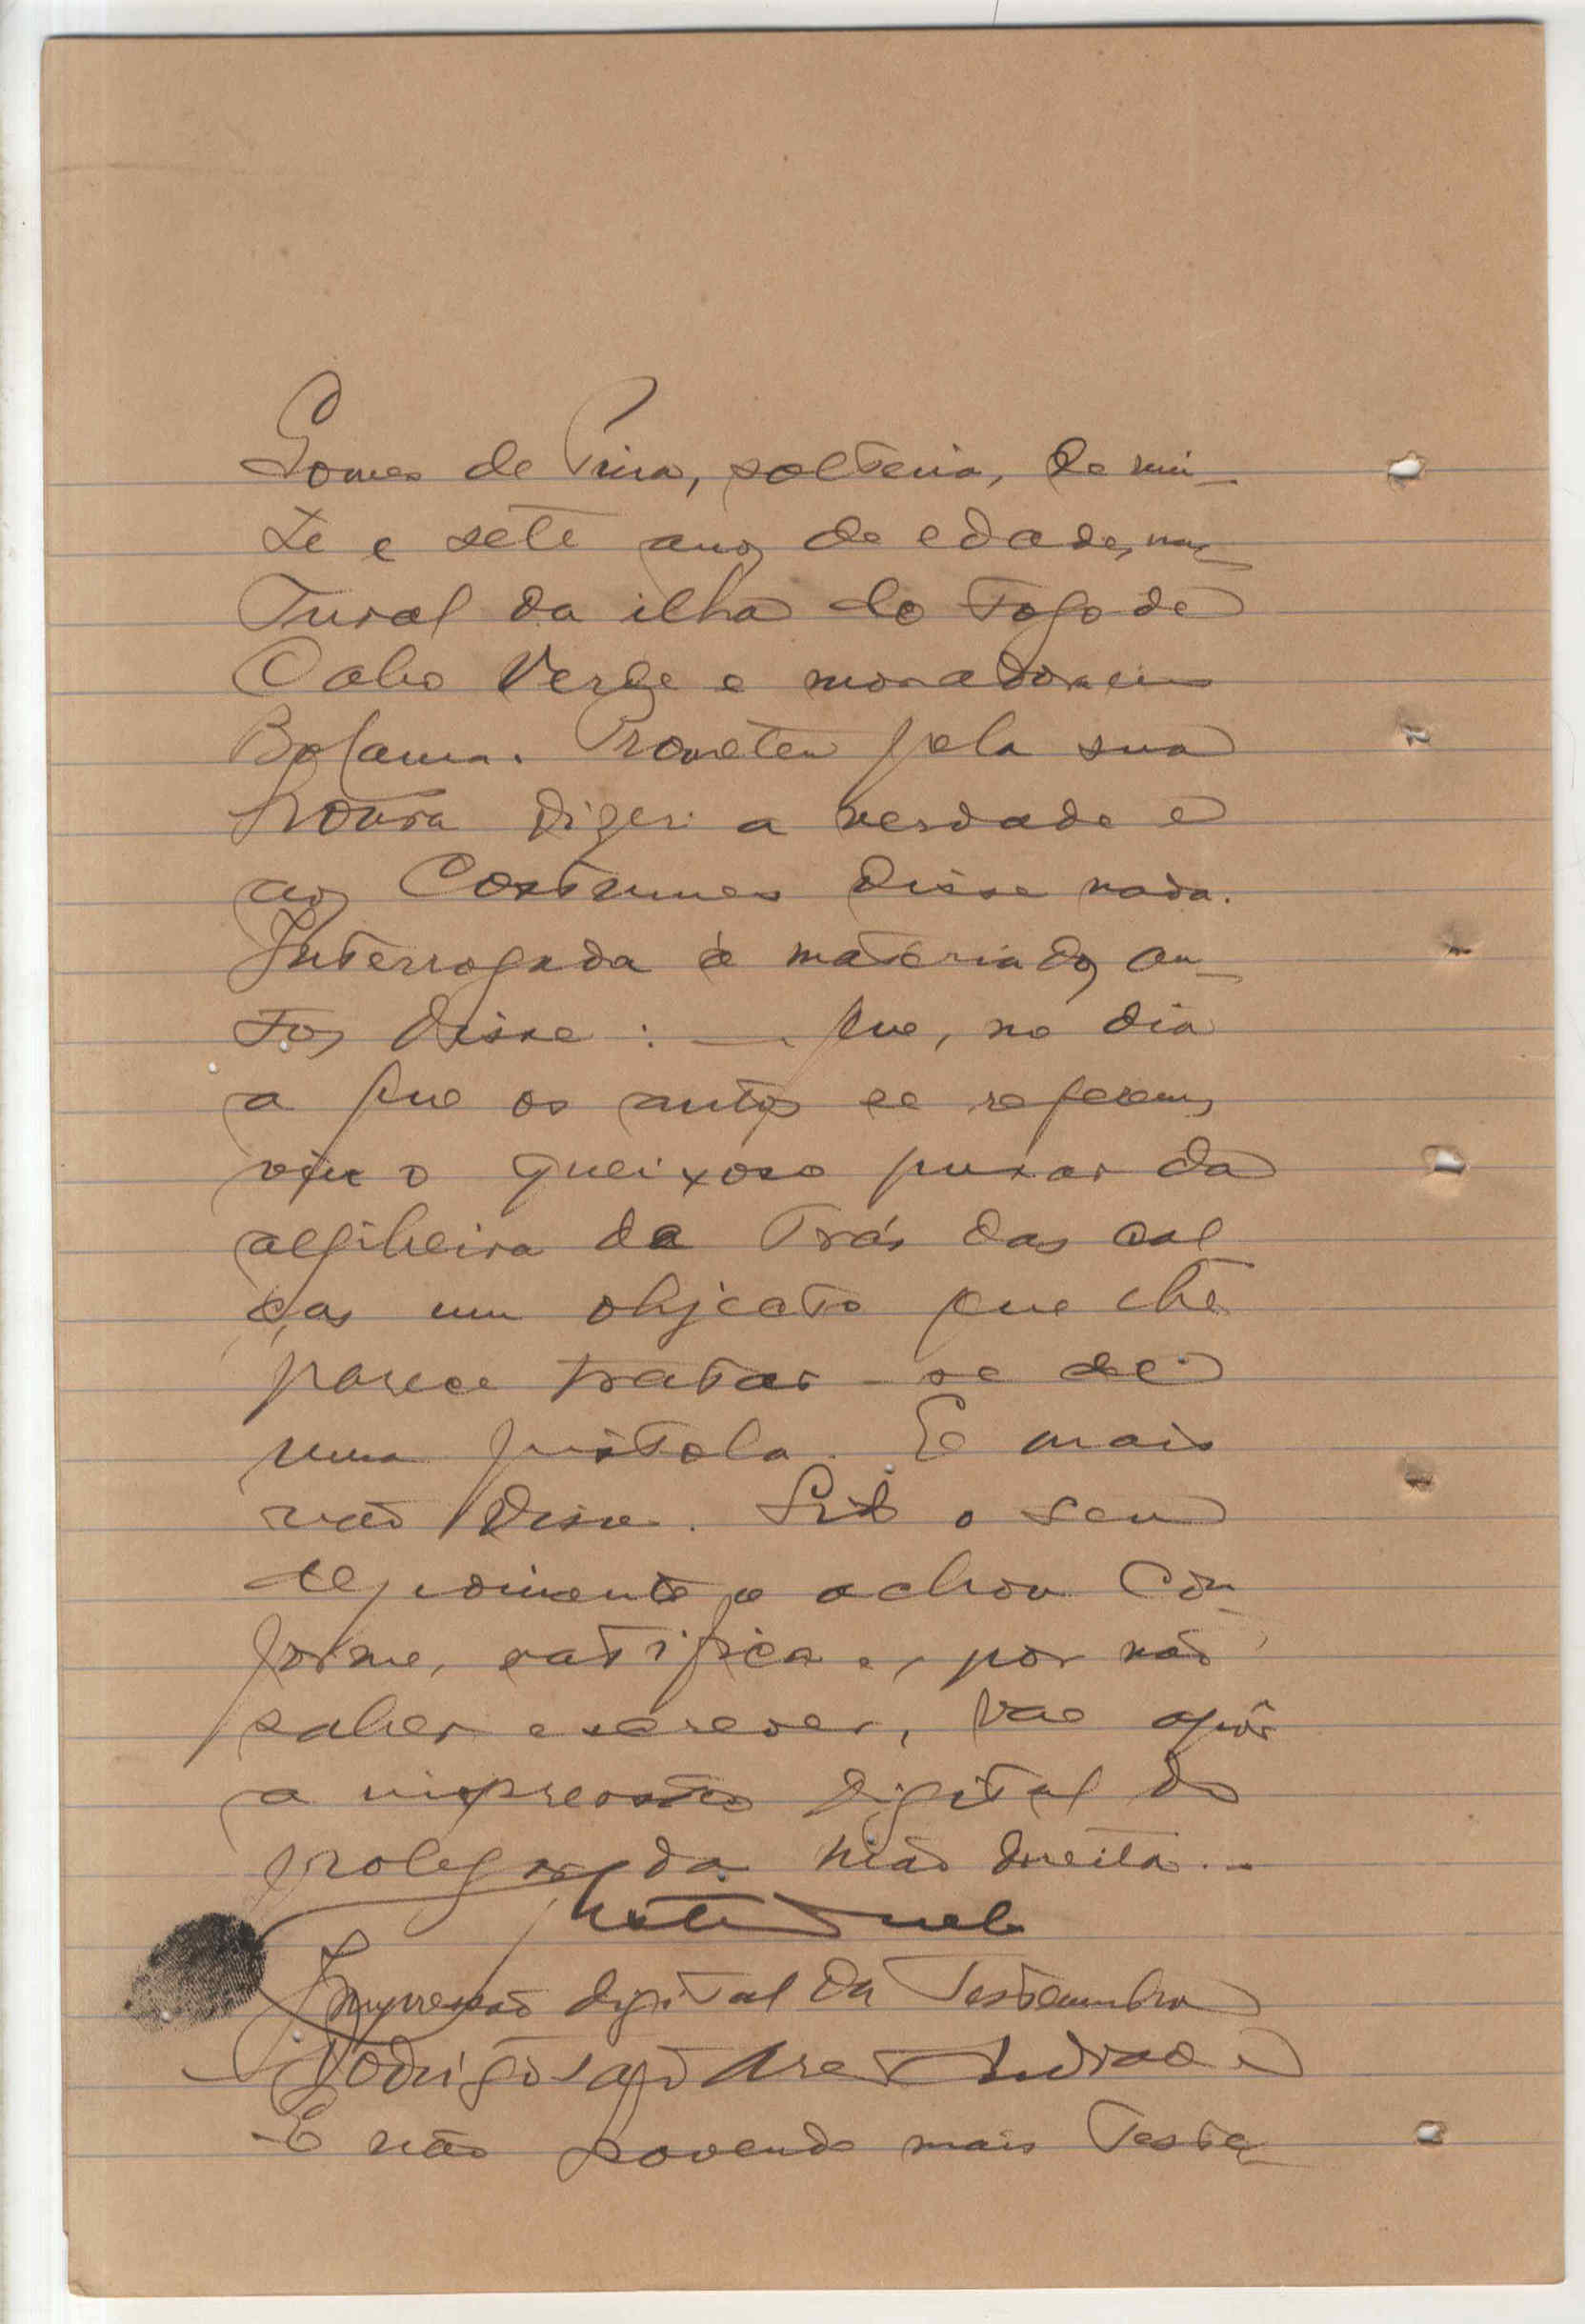 Gomes de Pina, solteira, de vin-
te e sete anos de edade, na-
tural da ilha do Fogo de
Cabo Verde e moradora em
Bolama. Prometeu pela sua
honra dizer a verdade e
aos costumes disse nada.
Interrogada à materia dos au-
tos disse: — que, no dia
a que os autos se referem,
viu o queixoso puxar da
algibeira de trás das cal
ças um objecto que lhe
parece tratar-se de
uma pistola. E mais
não disse. Lido o seu
depoimento o achou con-
forme, ratifica e, por não
saber escrever, vae apôr
a impressão digital do
polegar da mão direita..
Impressão digital da Testemunha
Andrade
E não havendo mais teste-